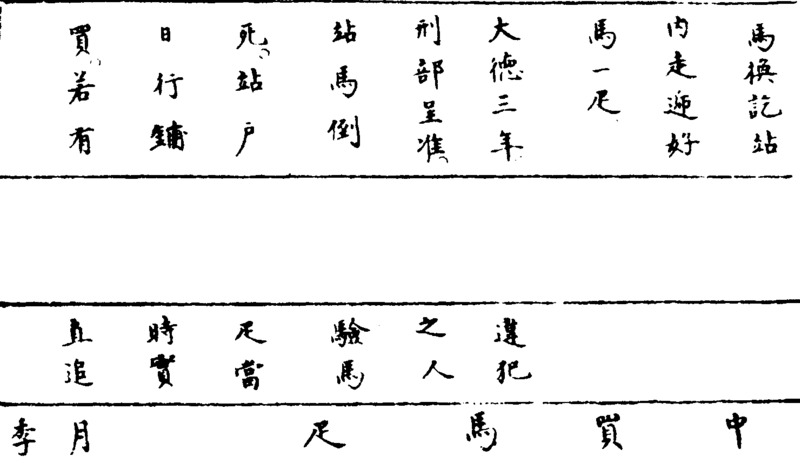 馬換訖站
内走逓好
馬一疋
大德三年
刑部呈准
站馬倒
死站户
日行鋪
買若有
違犯
之人
驗馬
疋當
時實
直追
中買馬疋
月季